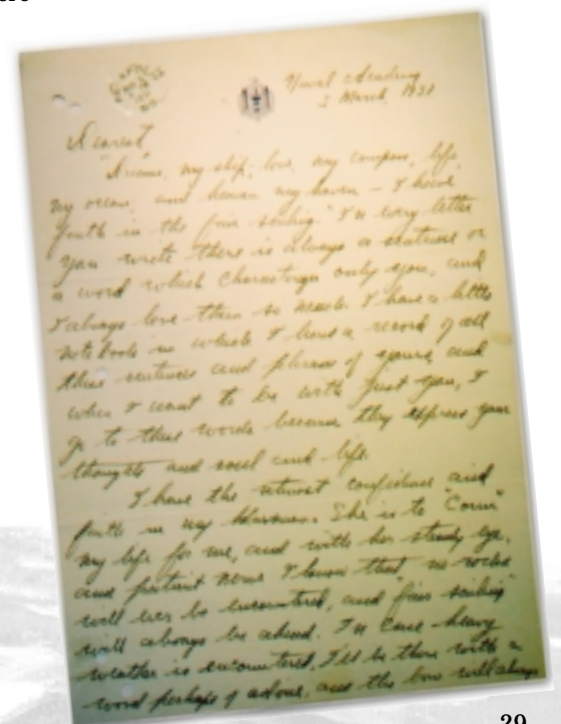 Naval Academy
2 March 1931
Dearest,
"Dreams, my ship; love, my compass, life,
my ocean, and heaven my haven – I have
faith in the fair sailing." In every letter
you write there is always a sentence or
a word which only you, and
I always love them so much. I have a little
note book in which I have a record of all
these sentences and phrases of yours, and
when I want to be with just you, I
go to these words because they express your
thoughts and soul and life.
I have the utmost confidence and
faith in my. She is to "Conn"
my life for me, and with her steady eye,
and patient nerve I know that no rocks
will ever be encountered, and "fair sailing"
will always be ahead. In case heavy
weather is encountered, I'll be there with a
word perhaps of advice, and the bow will always
29